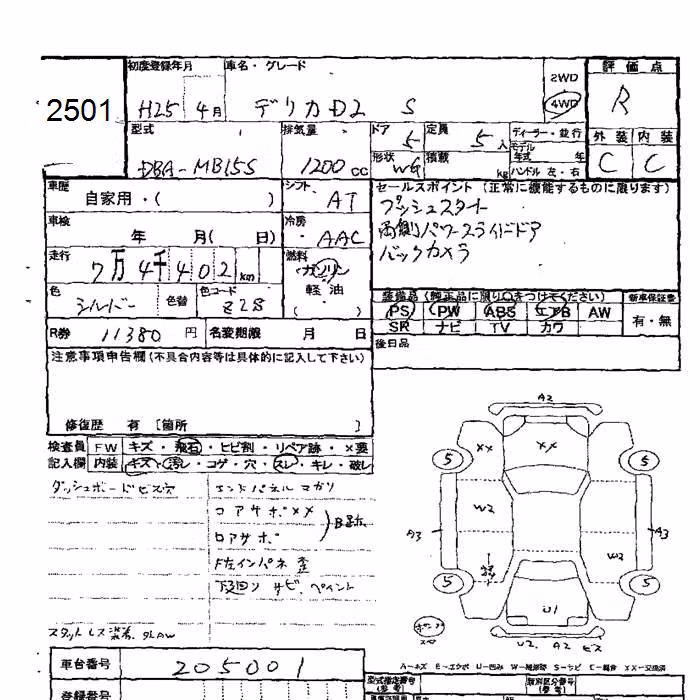 2501
初度登録年月 車名・グレード
H25 4月 デリカD2 S
2WD
4WD
評価点
R
外装 内装
C C
型式 排気量 ドア 定員 ディーラー・並行
DBA-MB15S 1200cc 5 5人
モデル年式 年
形状 WG 積載 kg ハンドル 左・右
車歴 自家用・( )
シフト AT
車検 年 月( 日)
冷房 AAC
走行 7万4千402km
燃料 ガソリン 軽油 ( )
色 シルバー 色替 色コード Z2S
R券 11380円 名変期限 月 日
セールスポイント(正常に機能するものに限ります)
プッシュスタート
両側パワースライドドア
バックカメラ
装備品(純正品に限り○をつけてください) 新車保証書
PS PW ABS エアB AW 有・無
SR ナビ TV カワ
後日品
注意事項申告欄(不具合内容等は具体的に記入して下さい)
修復歴 有 [箇所 ]
検査員 FW キズ・飛石・ヒビ割・リペア跡・×要
記入欄 内装 キズ・汚レ・コゲ・穴・スレ・キレ・破レ
ダッシュボードビス穴 エンドパネルマガリ
コアサポ××
ロアサポ
F左インパネ歪
下廻り サビ、ペイント
A2
XX XX
5 5
W2
A3 A3
W2
5 5
U1
U2 A2
A-キズ E-エクボ U-凹み W-補修跡 S-サビ C-腐食 XX-交換済
車台番号 205001
登録番号
型式指定番号 (参考)
類別区分番号 (参考)